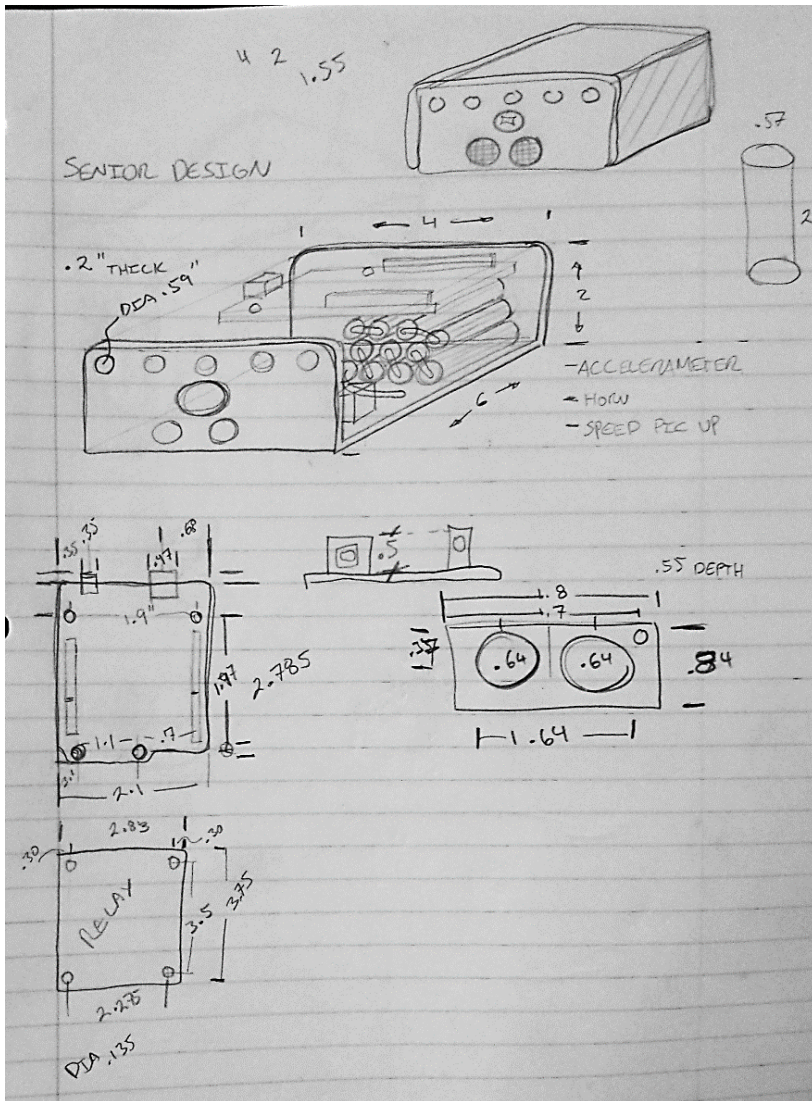 4 2 1.55
SENIOR DESIGN
.57
2
4
.2" THICK
DIA .59"
2
6
-ACCELERAMETER
- HORN
- SPEED PIC UP
.35
.35
.47
.68
1.9"
1.97
2.785
1.1
.7
2.1
.5
.55 DEPTH
1.8
.7
.37
.64
.64
.84
1.64
2.83
.30
.30
RELAY
3.5
3.75
2.275
DIA .135